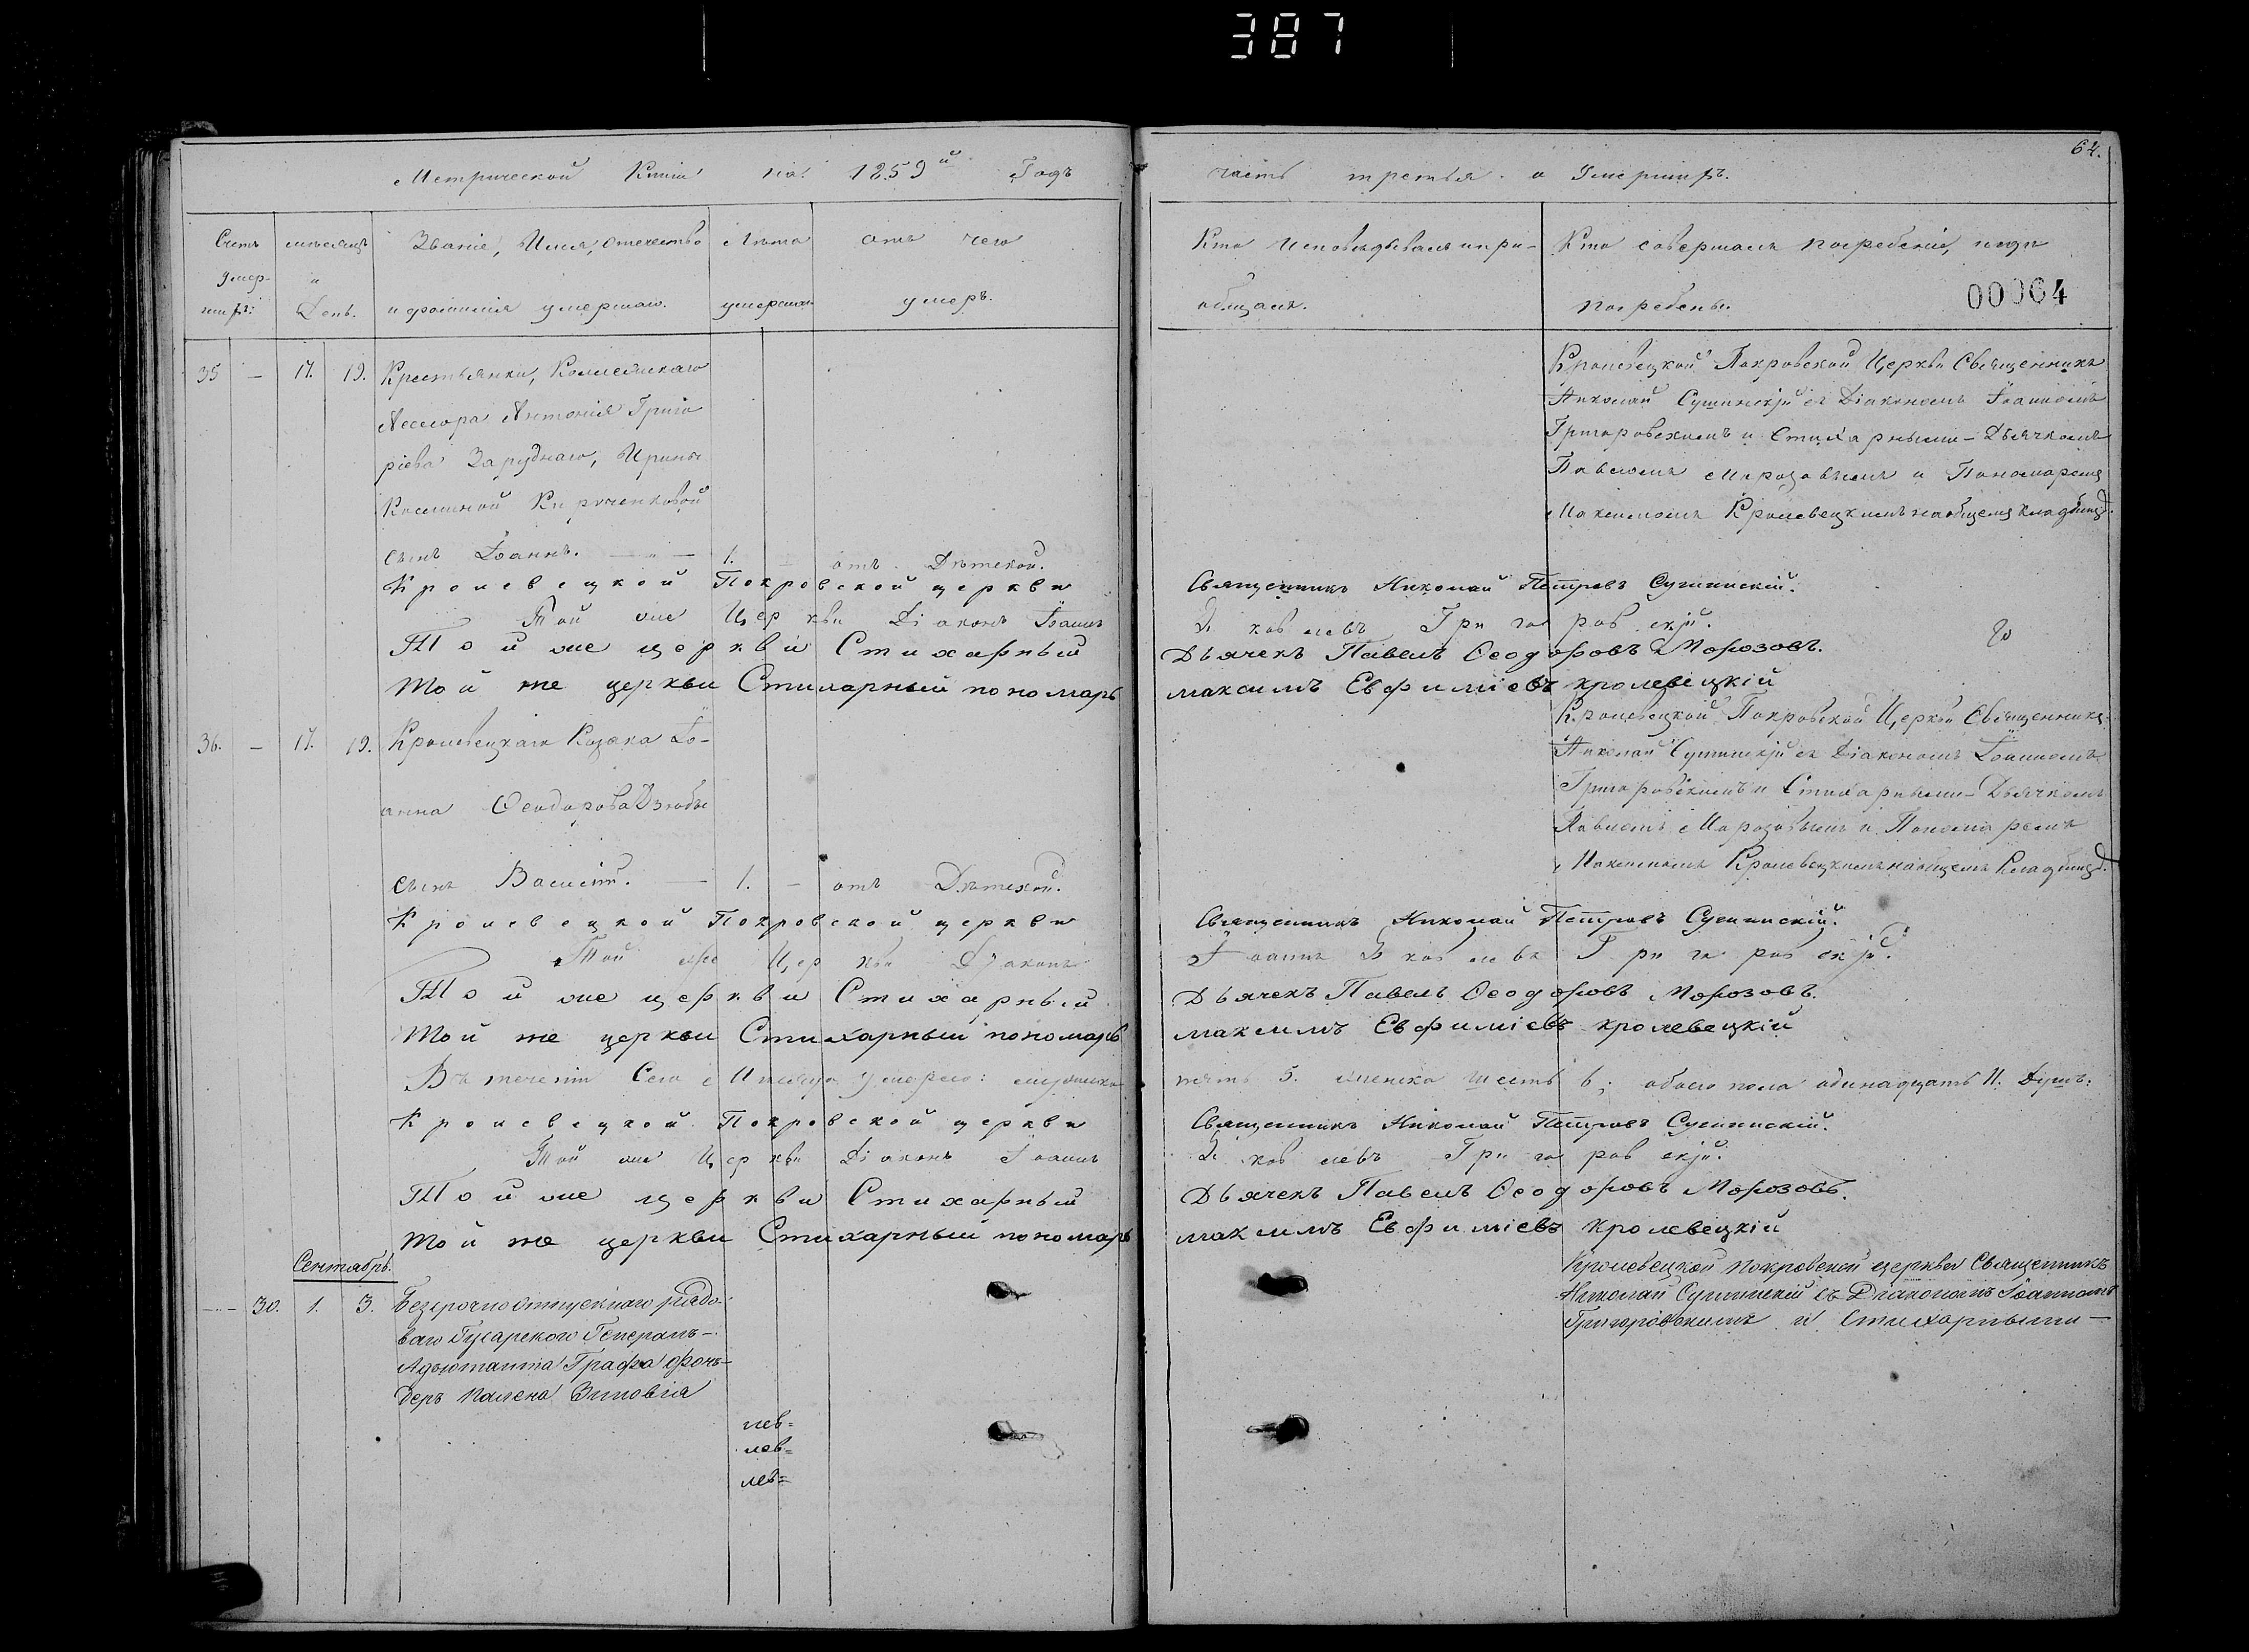 387
Метрической Книги на 1859й Годъ
Счетъ умер-шихъ:
мѣсяцъ и День.
Званіе, Имя, отечество
и фамилія умершаго.
Лѣта
умершаго
отъ чего
умеръ.
35 — 17. 19. Крестьянки, Коллежскаго
Ассесора Антонія Григо
ріева Заруднаго, Ирины
Косминой Кириченковой
сынъ Іоаннъ. — „ — 1. — отъ Дѣтской.
Кролевецкой Покровской церкви
Той же Церкви Діаконъ Іоаннъ
Той же церкви Стихарный
Той же церкви Стихарный пономарь
36. — 17. 19. Кролевецкаго Козака Іо-
анна Ѳеодорова Дзюбы
сынъ Василій. — 1. — отъ Дѣтской.
Кролевецкой Покровской церкви
Той же Церкви Діаконъ
Той же церкви Стихарный
Той же церкви Стихарный пономарь
Въ теченіи Сего Мѣсяца умерло: мужеска
Кролевецкой Покровской церкви
Той же Церкви Діаконъ Іоаннъ
Той же церкви Стихарный
Той же церкви Стихарный пономарь
Сентябрь.
— 30. 1. 3. Безсрочно отпускного рядо-
ваго Гусарского Генералъ-
Адьютанта Графа фонъ-
деръ Палена Зиновія
лев=
лев=
лев=
64.
часть третья о Умершихъ.
Кто Исповѣдывалъ и при-
общалъ.
Кто совершалъ погребеніе, и гдѣ
погребены.
00064
Кролевецкой Покровской Церкви Священникъ
Николай Сушинскій съ Діакономъ Іоанномъ
Григоровскимъ и Стихарными — Дьячкомъ
Павломъ Морозовымъ и Пономаремъ
Максимомъ Кролевецкимъ на общемъ кладбищѣ.
Священникъ Николай Петровъ Сушинскій.
Яковлевъ Григоровскій.
Дьячекъ Павелъ Ѳеодоровъ Морозовъ.
максимъ Евфиміевъ кролевецкій
Кролевецкой Покровской Церкви Священникъ
Николай Сушинскій съ Діакономъ Іоанномъ
Григоровскимъ и Стихарными — Дьячкомъ
Павломъ Морозовымъ и Пономаремъ
Максимомъ Кролевецкимъ на общемъ Кладбищѣ.
Священникъ Николай Петровъ Сушинскій.
Іоаннъ Яковлевъ Григоровскій.
Дьячекъ Павелъ Ѳеодоровъ Морозовъ.
максимъ Евфиміевъ кролевецкій
пять 5. женска шесть 6; обоего пола одинадцать 11. Душъ.
Священникъ Николай Петровъ Сушинскій.
Яковлевъ Григоровскій.
Дьячекъ Павелъ Ѳеодоровъ Морозовъ.
максимъ Евфиміевъ кролевецкій
Кролевецкой Покровской церкви Священникъ
Николай Сушинскій съ Діакономъ Іоанномъ
Григоровскимъ и Стихарными —